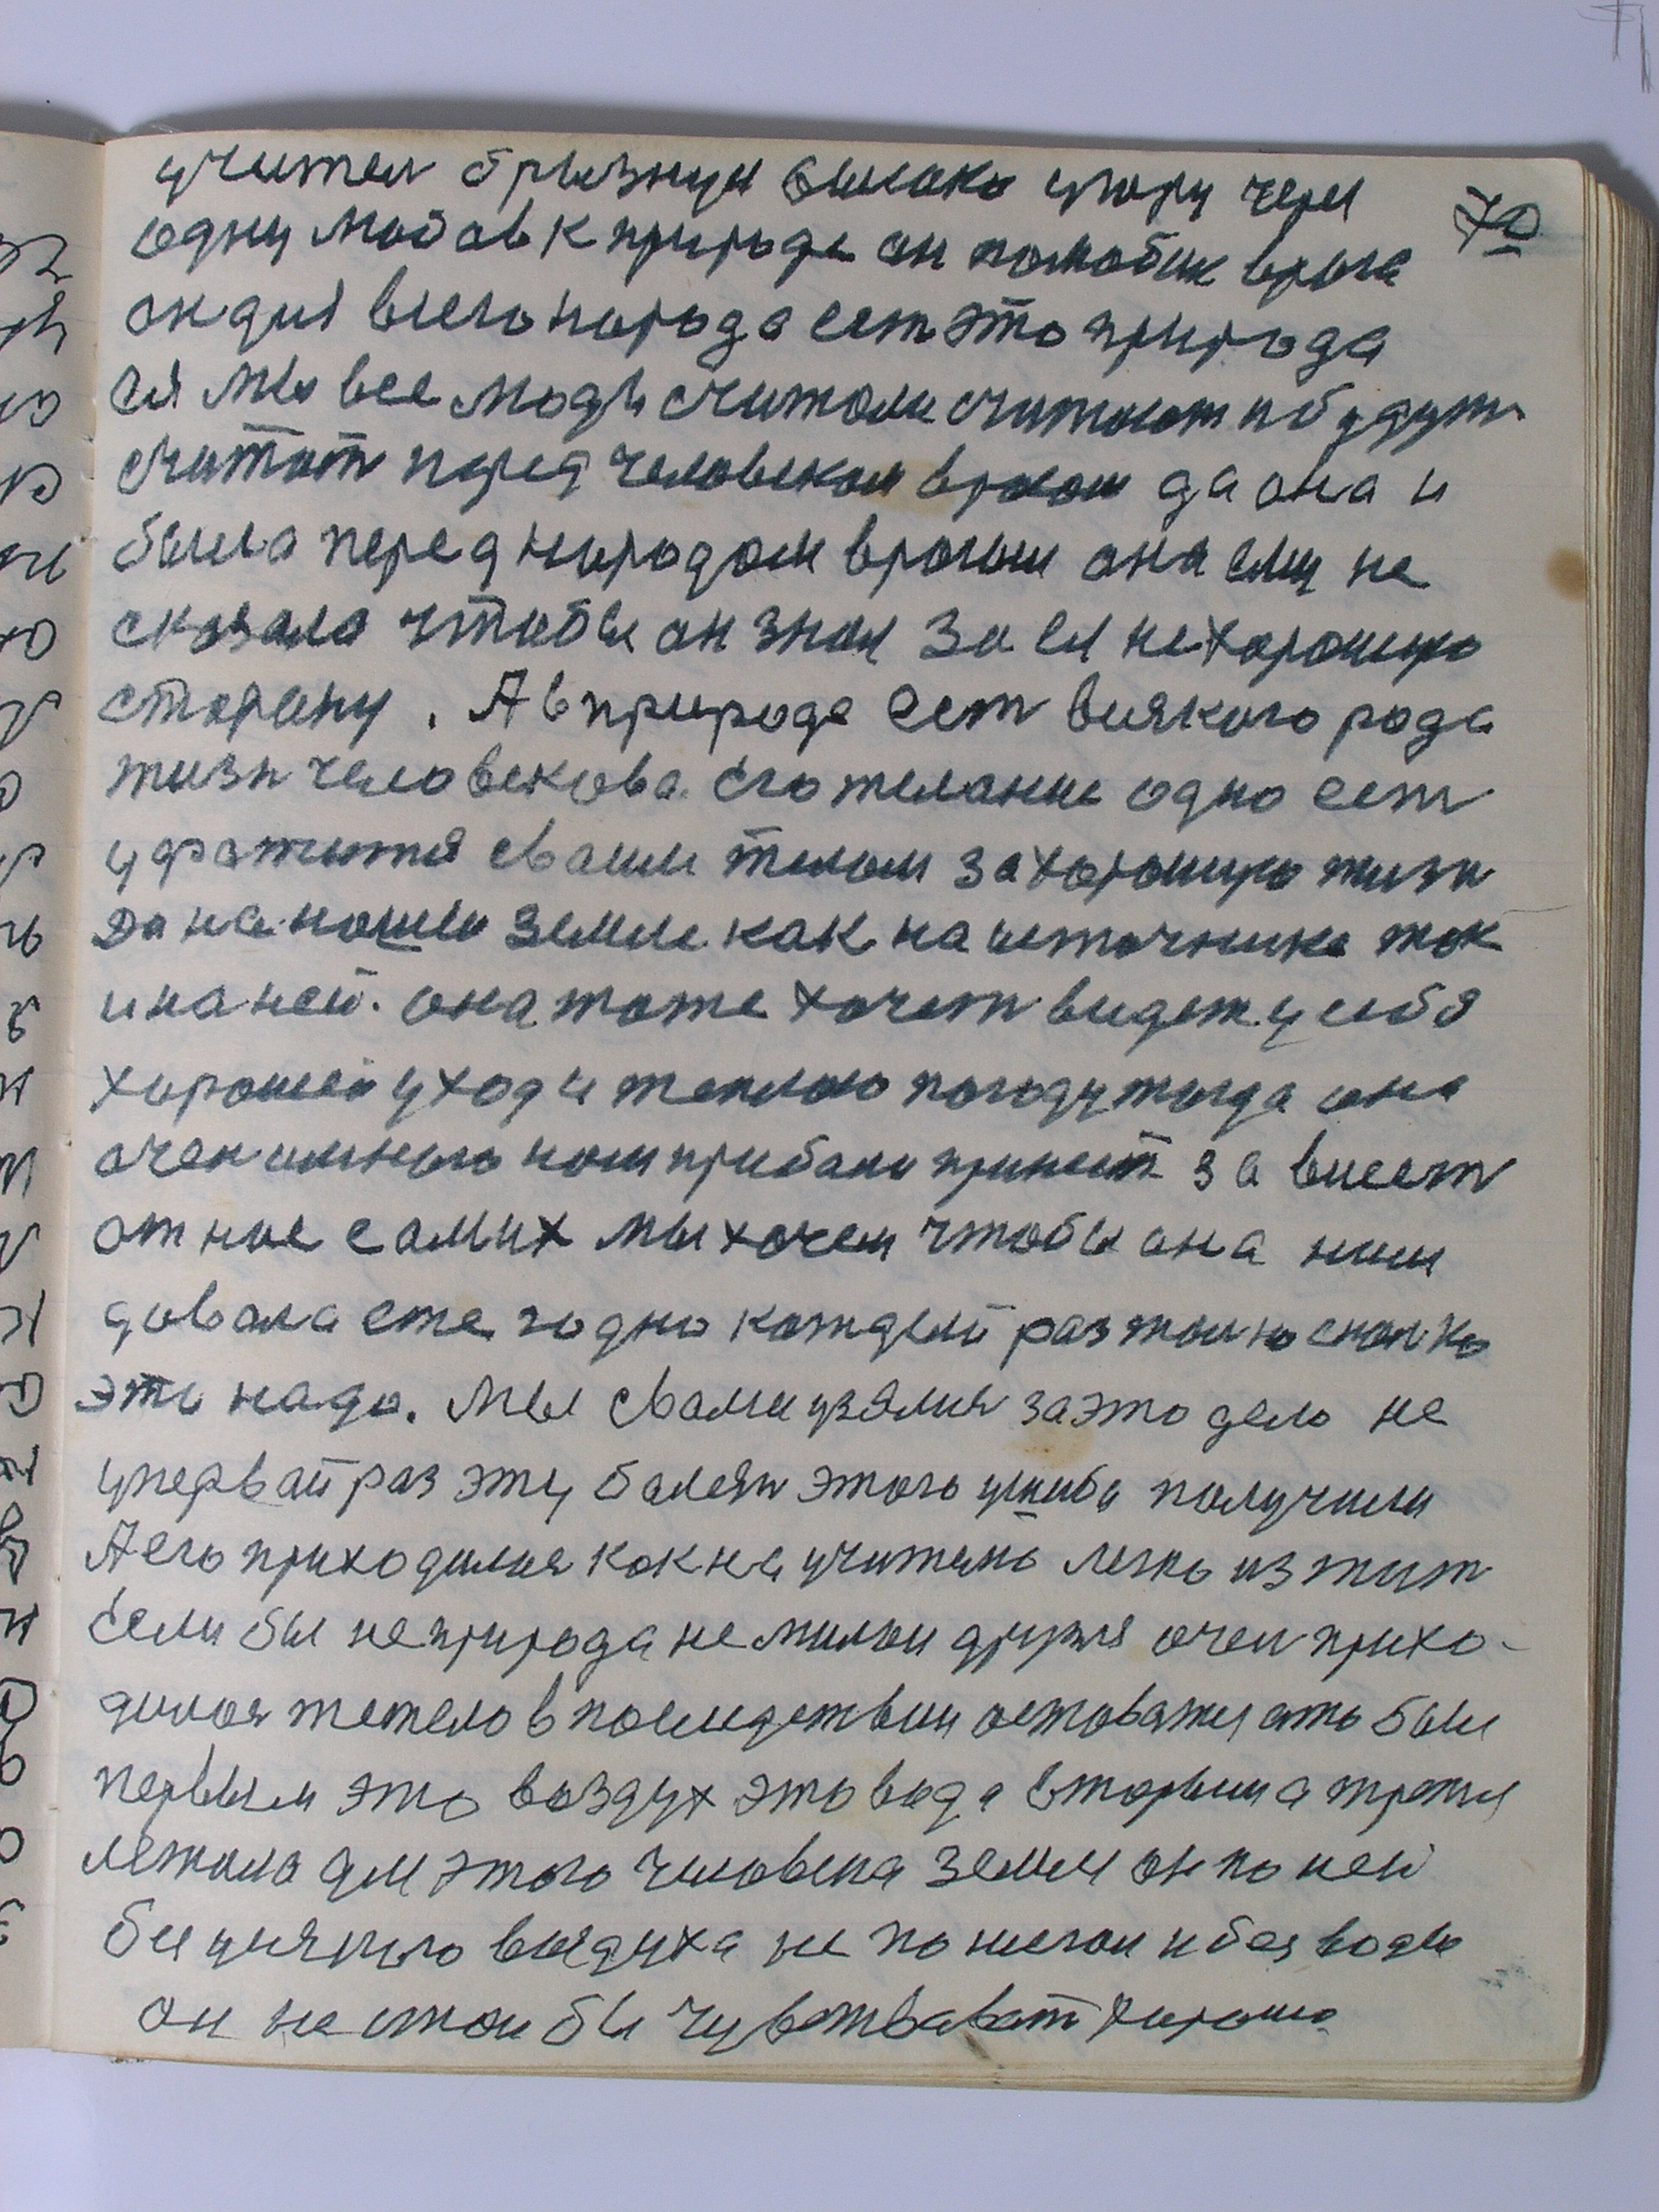 70
учител брызнул высоко угору чере
одну любов к природе он полюбил врага
он для всего народа ест это природа
ея мы все люди считали считают и будут
считат перед человеком врагом да она и
была перед народом врагом она ему не
сказала чтобы он знал за ея нехорошую
сторону. А в природе ест всякого рода
жизн человекова его желание одно ест
удражится своим телом за хорошую жизн
Да на нашей земле как на источнике так
и на ней. она тоже хочет видет у себя
хороший уход и теплою погоду тогда она
очен много нам прибыли принесёт за висст
от нас самих мы хочем чтобы она нам
давала ежегодно каждый раз только
это надо. Мы с вами узялис за это дело не
упервай раз эту болезн этого ушиба получили
А его приходилися как на учителю легко изжит
Если бы не природа не милои друзя очен прихо-
дилося тежело в последствии оставатся это был
первым это воздух это вода вторым а третя
лежала для этого человека земля он по ней
без воздуха не пошел и без воды
он не стал бы чувствоват хорошо